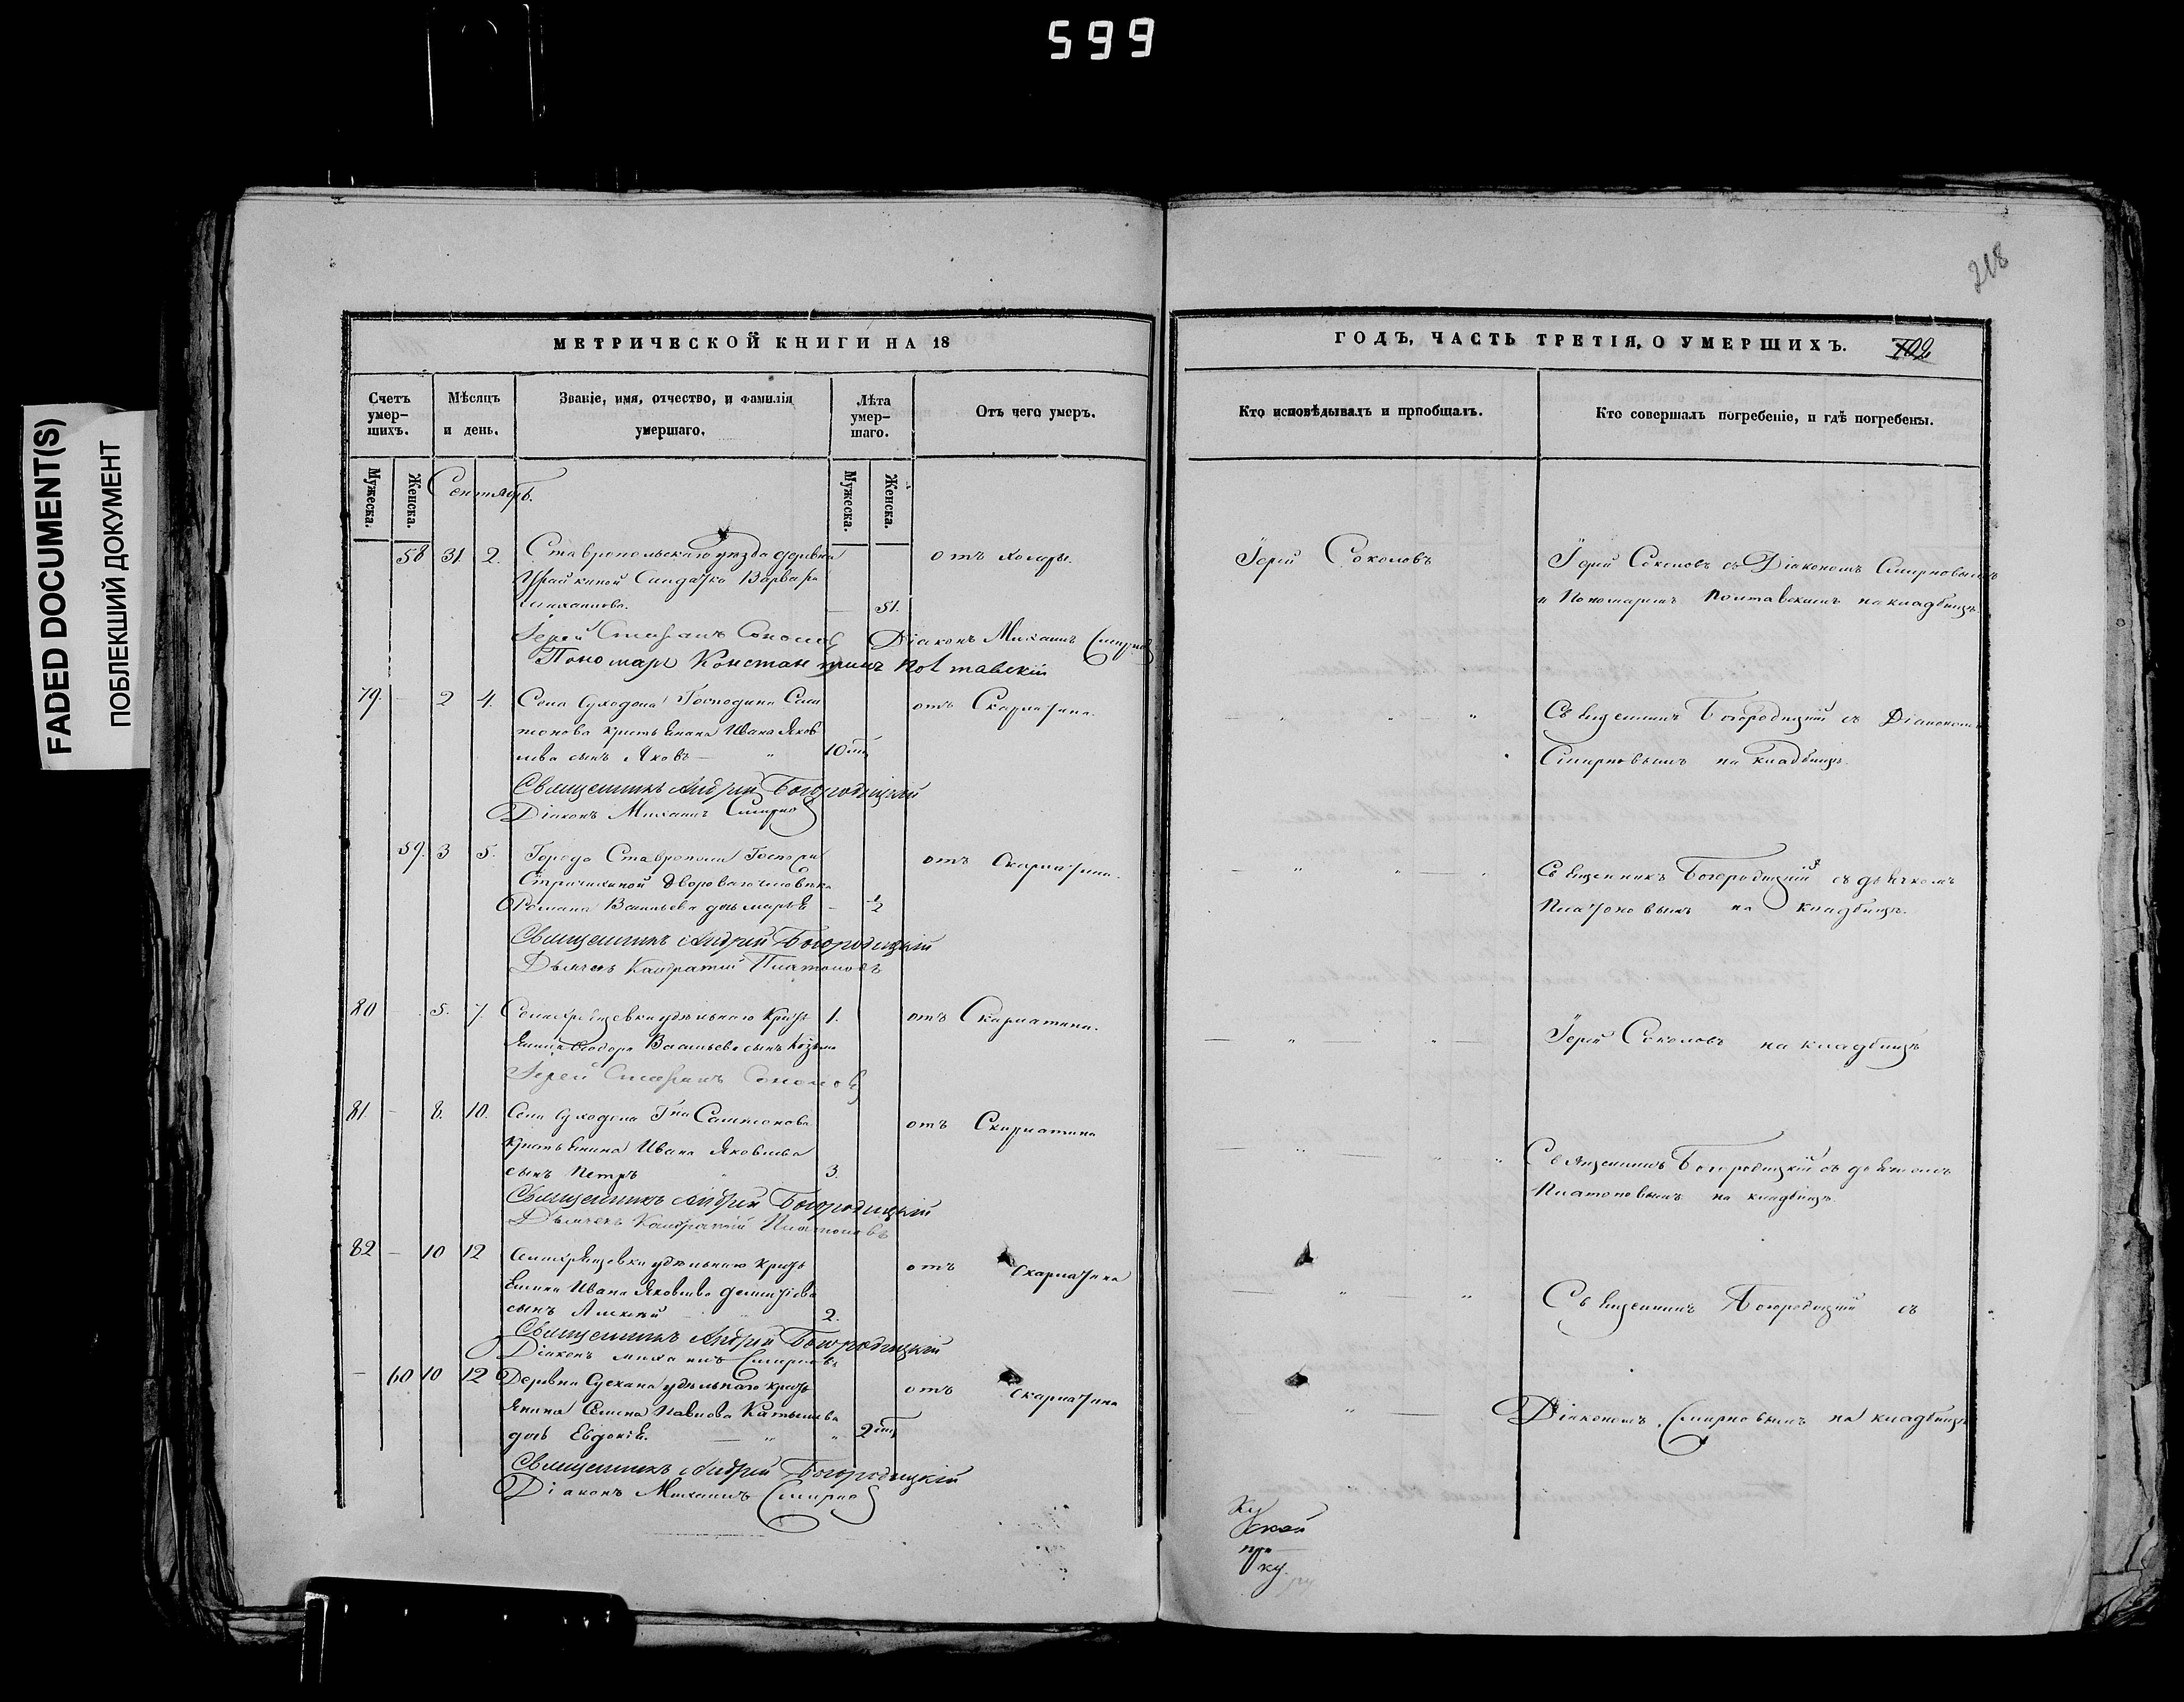 599
FADED DOCUMENT(S)
ПОБЛЕКШИЙ ДОКУМЕНТ
218
МЕТРИЧЕСКОЙ КНИГИ НА 18
Счетъ умер-шихъ.
Мѣсяцъ и день.
Званіе, имя, отчество, и фамилія умершаго.
Лѣта умер-шаго.
Отъ чего умеръ.
Мужеска.
Женска.
Мужеска.
Женска.
Сентябрь.
58 31. 2. Ставропольскаго уѣзда деревни отъ холеры.
Солдатка Варвара
51.
Іерей Соколов Діаконъ Михаилъ Смирнов
Пономарь Константинъ Полтавскій
79. — 2 4. Села Суходола Господина Сам отъ Скарлатина.
сонова крестьянина Ивана Яков
лева сынъ Яковъ — 10
Священникъ Андрей Богородицкій
Діаконъ Михаилъ Смирнов
59. 3 5. Города Ставрополя отъ Скарлатины.
двороваго человѣка
Романа Васильева дочь Марья — ½
Священникъ Андрей Богородицкій
Дьячекъ Платоновъ
80 — 5. 7. удѣльнаго крестъ 1. отъ Скарлатина.
янина Ѳеодора Васильева сынъ Козьма
Іерей Соколовъ
81. — 8. 10. Села Суходола Гна Самсонова отъ Скарлатина
крестьянина Ивана Яковлева
сынъ Петръ 3.
Священникъ Андрей Богородицкій
Дьячекъ Платоновъ
82 — 10 12 удѣльнаго кресть отъ Скарлатина
янина Ивана Яковлева
сынъ Алексѣй 2.
Священникъ Андрей Богородицкій
Діаконъ Михаилъ Смирновъ
— 60 10 12 Деревни удѣльнаго кресть отъ Скарлатина
янина Семена Павлова
дочь Евдокія. 2
Священникъ Андрей Богородицкій
Діаконъ Михаилъ Смирнов
ГОДЪ, ЧАСТЬ ТРЕТІЯ, О УМЕРШИХЪ.
102
Кто исповѣдывалъ и пріобщалъ.
Кто совершалъ погребеніе, и гдѣ погребены.
Іерей Соколовъ
Іерей Соколовъ съ Діакономъ Смирновымъ
и Пономаремъ Полтавскимъ на кладбищѣ.
Священникъ Богородицкій съ Діакономъ
Смирновымъ на кладбищѣ.
Священникъ Богородицкій съ дьячкомъ
Платоновымъ на кладбищѣ.
Іерей Соколовъ на кладбищѣ
Священникъ Богородицкій съ дьячкомъ
Платоновымъ на кладбищѣ.
Священникъ Богородицкій съ
Діакономъ Смирновымъ на кладбищѣ